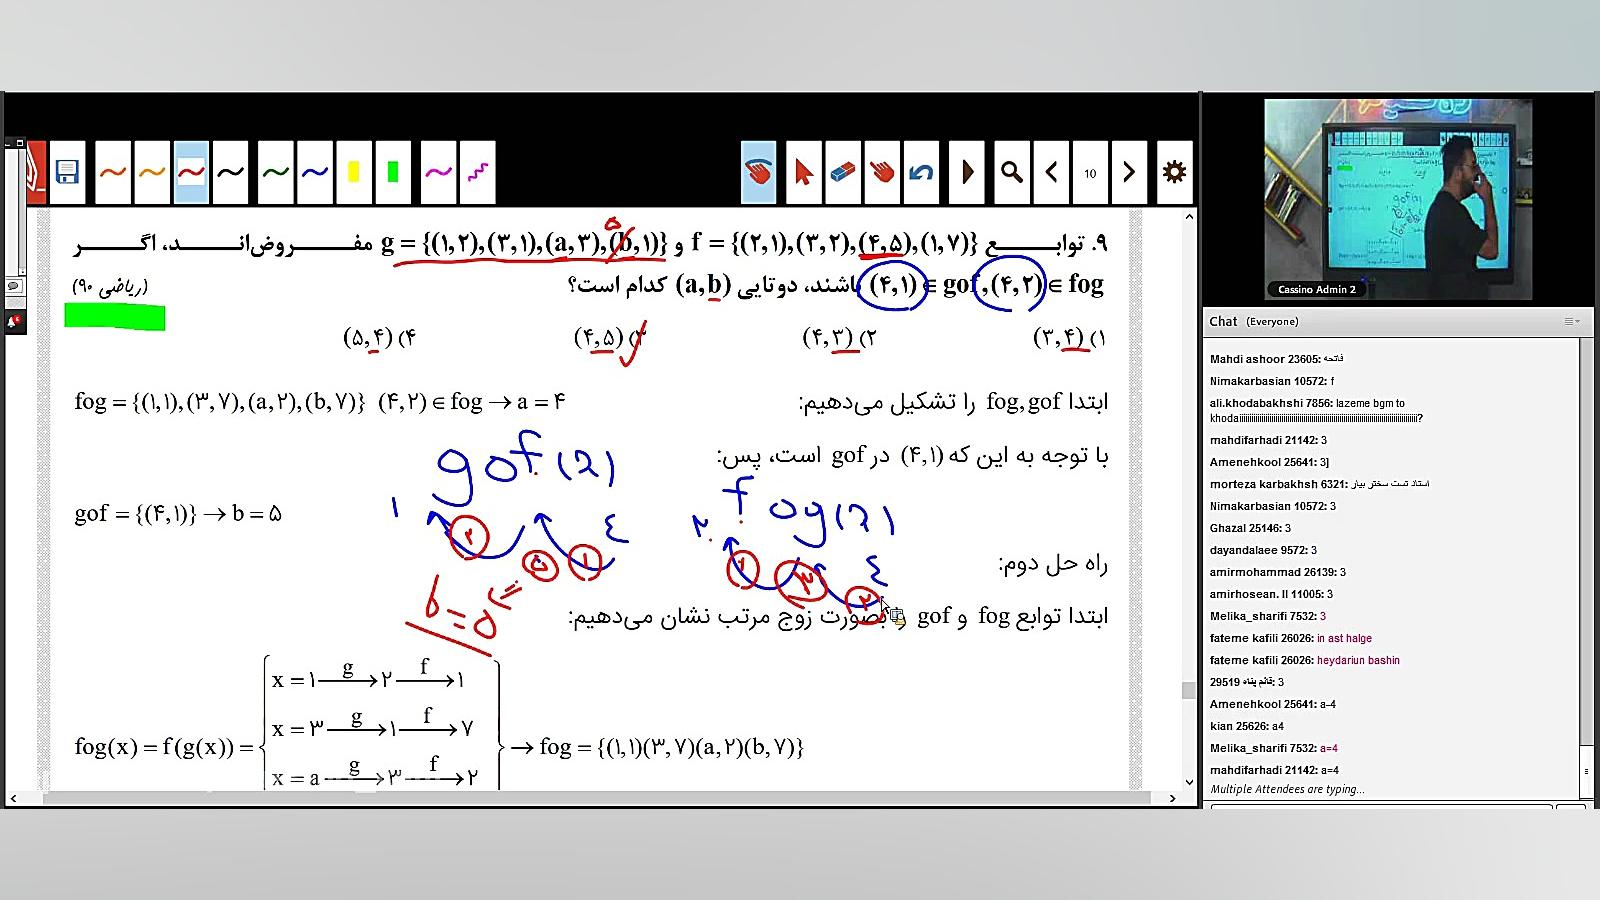 10
۹. توابع f = {(۲,۱),(۳,۲),(۴,۵),(۱,۷)} و g = {(۱,۲),(۳,۱),(a,۳),(b,۱)} مفروض‌اند، اگر
۵
(۴,۲) ∈ fog , (۴,۱) ∈ gof باشند، دوتایی (a,b) کدام است؟ (ریاضی ۹۰)
۱) (۳,۴) ۲) (۴,۳) ۳) (۴,۵) ۴) (۵,۴)
ابتدا fog, gof را تشکیل می‌دهیم:
fog = {(۱,۱),(۳,۷),(a,۲),(b,۷)} (۴,۲) ∈ fog → a = ۴
با توجه به این که (۴,۱) در gof است، پس:
gof = {(۴,۱)} → b = ۵
gof(2)
۱ ۲ ۵ ۱ ٤
b = ۵
fog(2)
۲ ۱ ۳ ۲ ٤
راه حل دوم:
ابتدا توابع fog و gof را بصورت زوج مرتب نشان می‌دهیم:
x = ۱ —g→ ۲ —f→ ۱
x = ۳ —g→ ۱ —f→ ۷
fog(x) = f(g(x)) = → fog = {(۱,۱)(۳,۷)(a,۲)(b,۷)}
x = a —g→ ۳ —f→ ۲
Cassino Admin 2
Chat (Everyone)
Mahdi ashoor 23605: فاتحه
Nimakarbasian 10572: f
ali.khodabakhshi 7856: lazeme bgm to
Amenehkool 25641: 3]
mahdifarhadi 21142: 3
morteza karbakhsh 6321: استاد تست سختر بیار
Nimakarbasian 10572: 3
Ghazal 25146: 3
dayandalaee 9572: 3
amirmohammad 26139: 3
amirhosean. ll 11005: 3
Melika_sharifi 7532: 3
fateme kafili 26026: in ast halge
fateme kafili 26026: heydariun bashin
قائم پناه 29519: 3
Amenehkool 25641: a-4
kian 25626: a4
Melika_sharifi 7532: a=4
mahdifarhadi 21142: a=4
Multiple Attendees are typing...